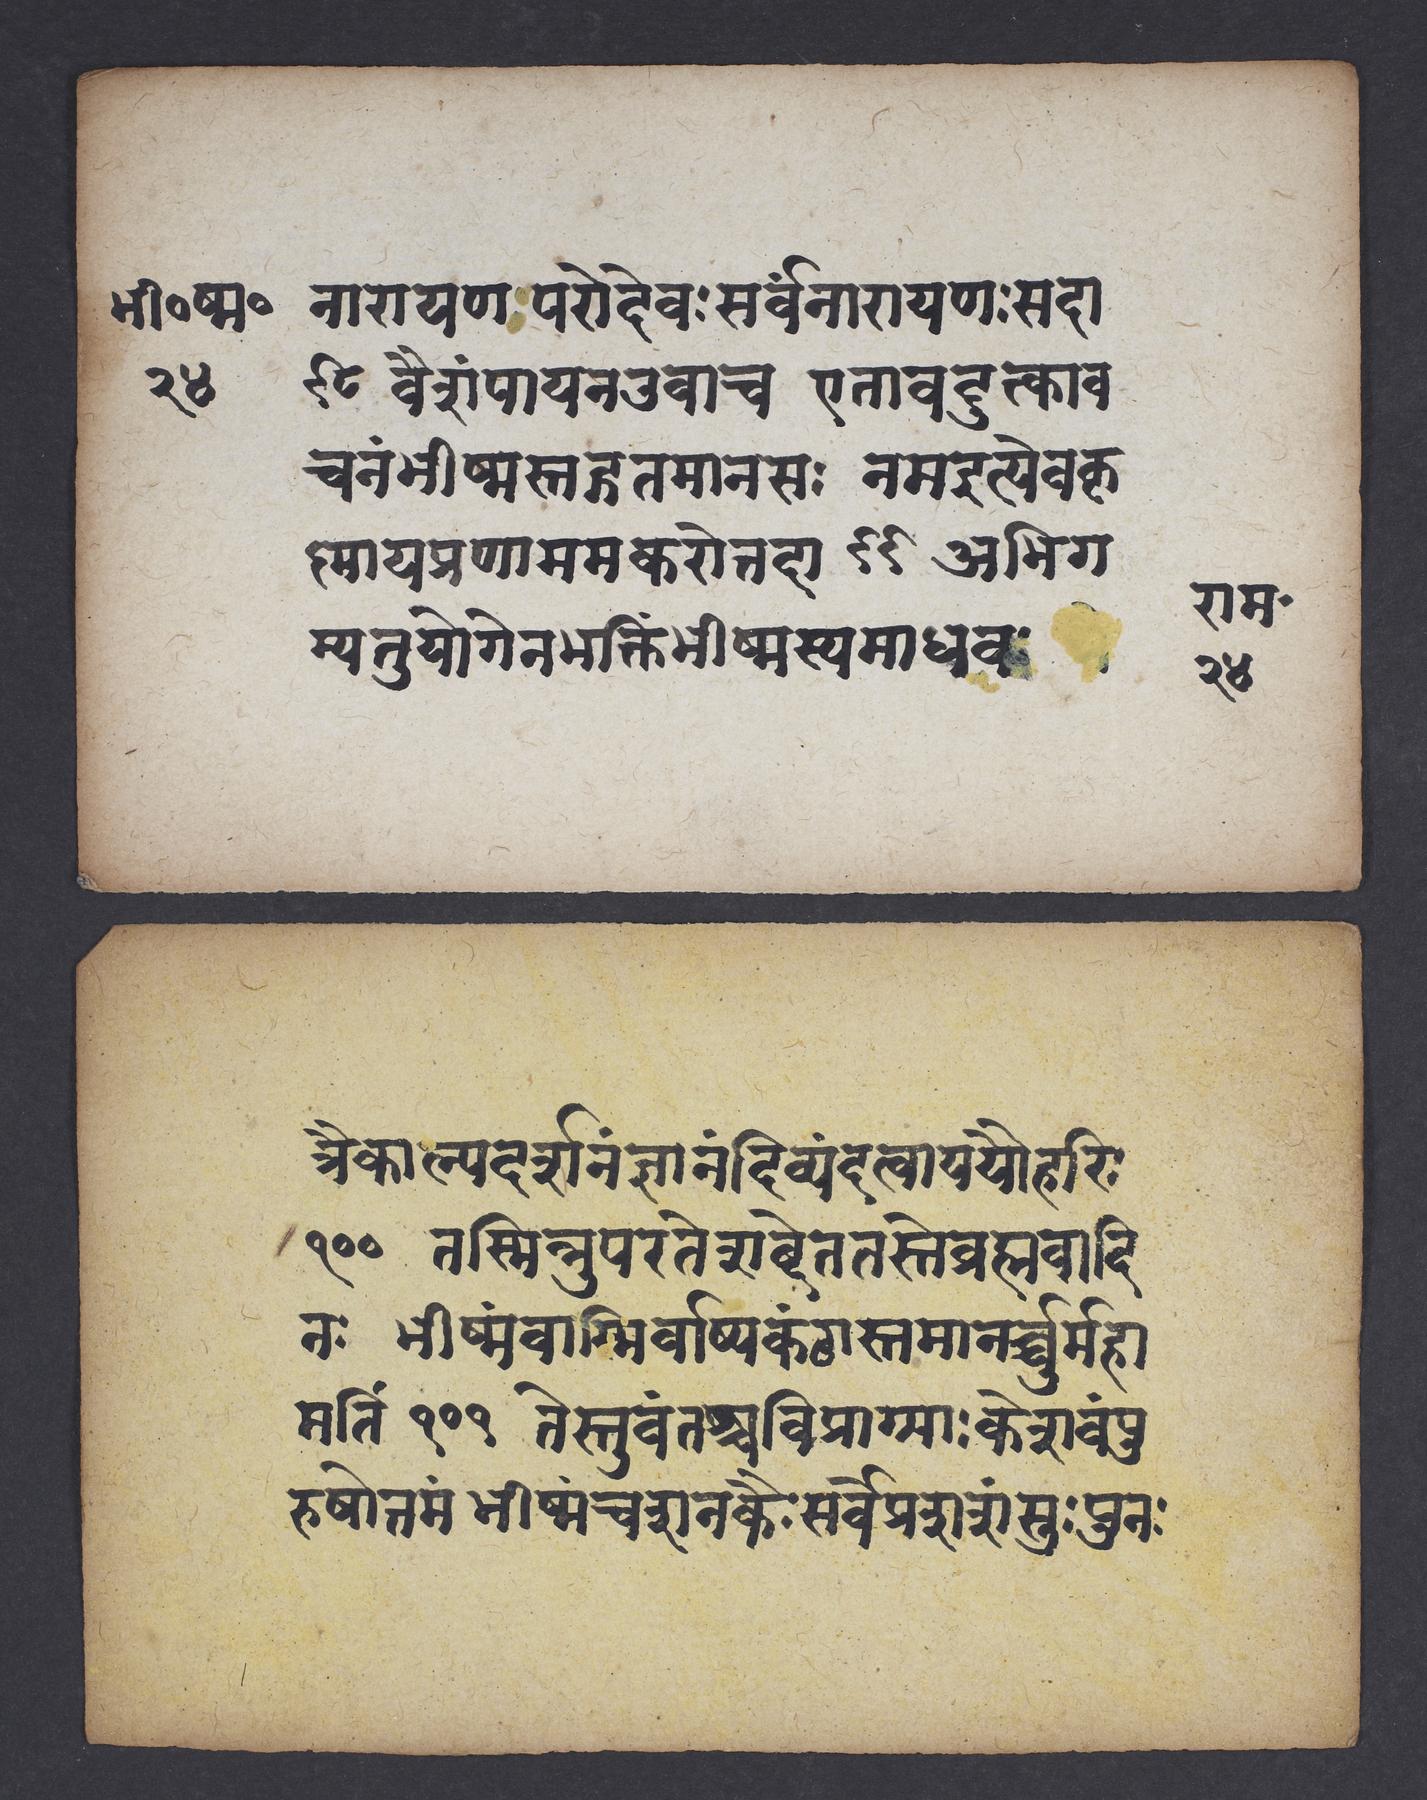 भी०ष्म०
२४
नारायण परोदेवः सर्वंनारायणः सदा
९८ वैशंपायनउवाच एतावदुत्काव
चनंभीष्मस्तद्गतमानसः नमइत्येवकृ
ष्णायप्रणाममकरोत्तदा ९९ अभिग
म्यतुयोगेनभक्तिंभीष्मस्यमाधवः
राम॰
२४
त्रैकाल्यदर्शनंज्ञानंदिव्यंदत्वाययौहरिः
१०० तस्मिन्नुपरतेशब्देततस्तेब्रह्मवादि
नः भीष्मंवाग्भिर्वाष्पकंठास्तमानर्च्चुर्महा
मतिं १०१ तेस्तुवंतश्चविप्राग्याःकेशवंपु
रुषोत्तमं भीष्मंचशनकैःसर्वेप्रशशंसुःपुनः